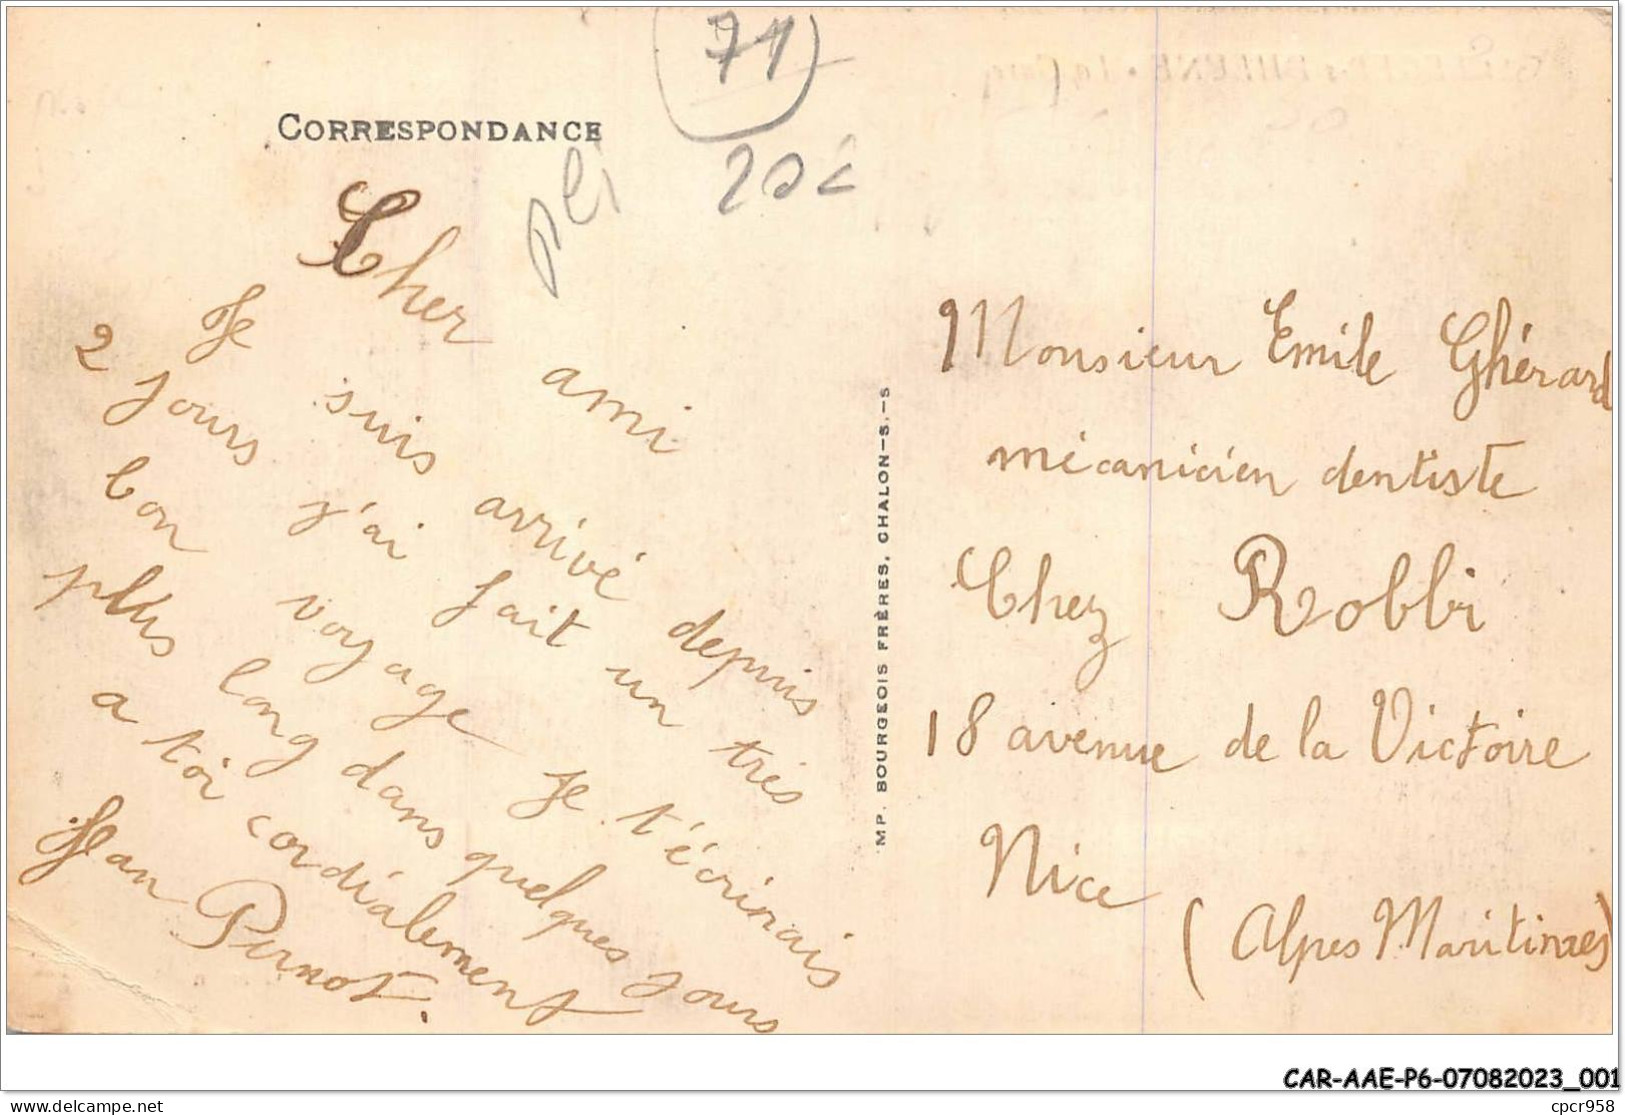 71
20€
CORRESPONDANCE
pli
Cher ami
Je suis arrivé depuis
2 jours j'ai fait un très
bon voyage je t'écrirais
plus long dans quelques jours
a toi cordialement
Jean Pernot.
MP. BOURGEOIS FRÈRES, CHALON-S.-S
Monsieur Emile Ghérard
mécanicien dentiste
Chez Robbi
18 avenue de la Victoire
Nice
(Alpes Maritimes)
CAR-AAE-P6-07082023_001
delcampe.net
cpcr958